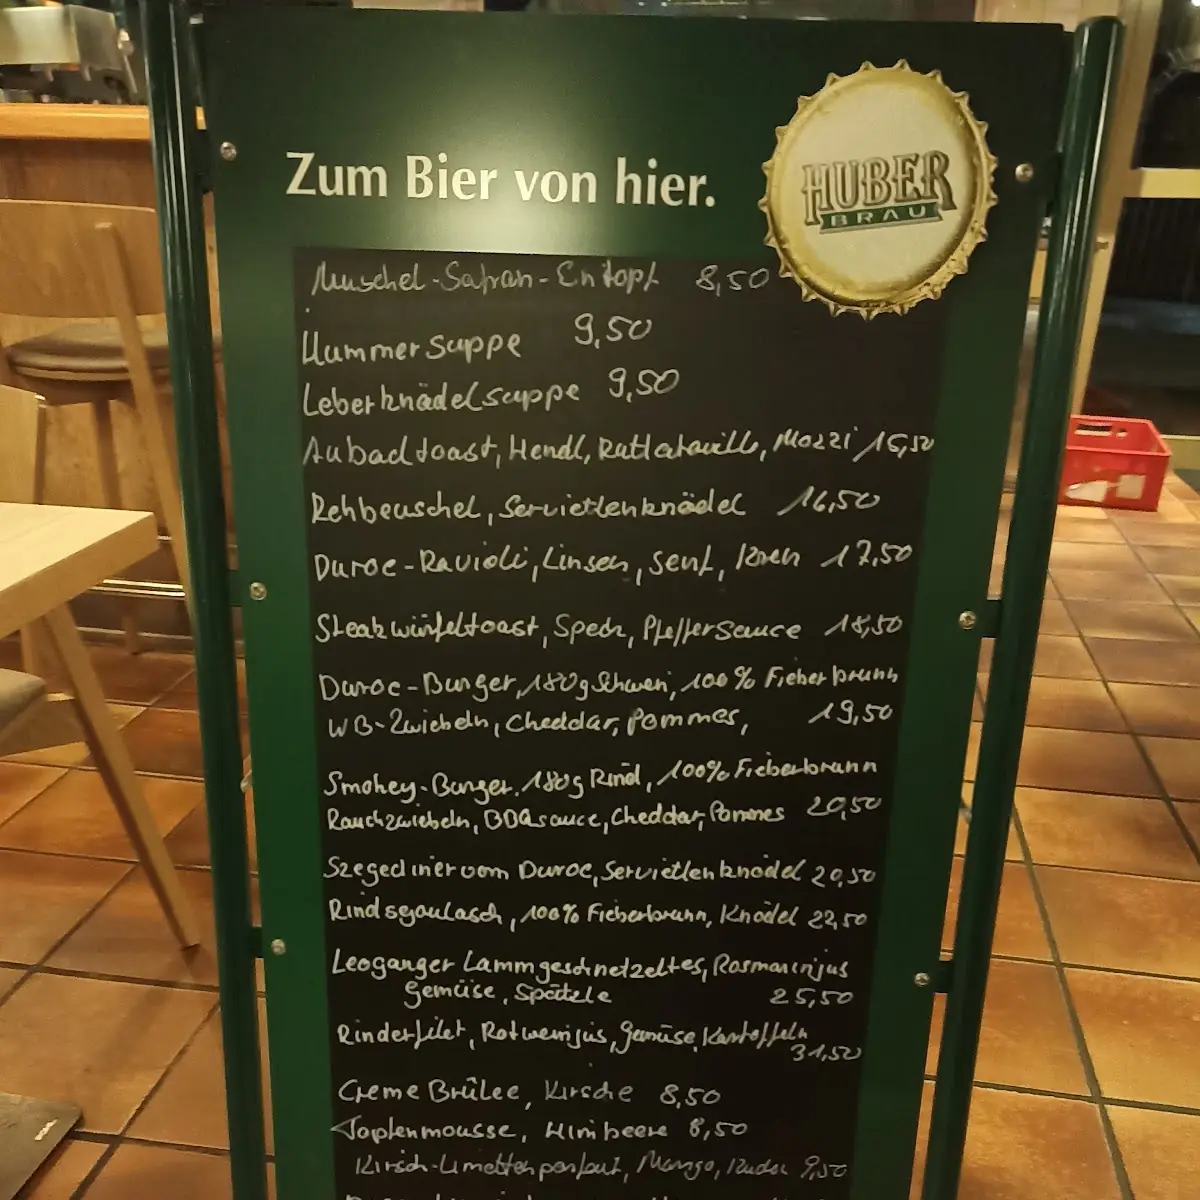 Zum Bier von hier.
HUBER
BRÄU
Muschel-Safran-Entopf 8,50
Hummersuppe 9,50
Leberknödelsuppe 9,50
Aubadtoast, Hendl, Rattatouille, Mozzi 15,50
Rehbeuschel, Serviettenknödel 16,50
Duroc-Ravioli, Linsen, Senf, Kren 17,50
Steakwürfeltoast, Speck, Pfeffersauce 18,50
Duroc-Burger, 180g Schwein, 100% Fieberbrunn
WB-Zwiebeln, Cheddar, Pommes, 19,50
Smokey-Burger, 180g Rind, 100% Fieberbrunn
Rauchzwiebeln, BBQsauce, Cheddar, Pommes 20,50
Szegediner vom Duroc, Serviettenknödel 20,50
Rindsgoulasch, 100% Fieberbrunn, Knödel 22,50
Leoganger Lammgeschnetzeltes, Rosmarinjus
Gemüse, Spätzle 25,50
Rinderfilet, Rotweinjus, Gemüse, Kartoffeln
31,50
Creme Brûlee, Kirsche 8,50
Topfenmousse, Himbeere 8,50
Kirsch-Limettenparfait, Mango, 9,50